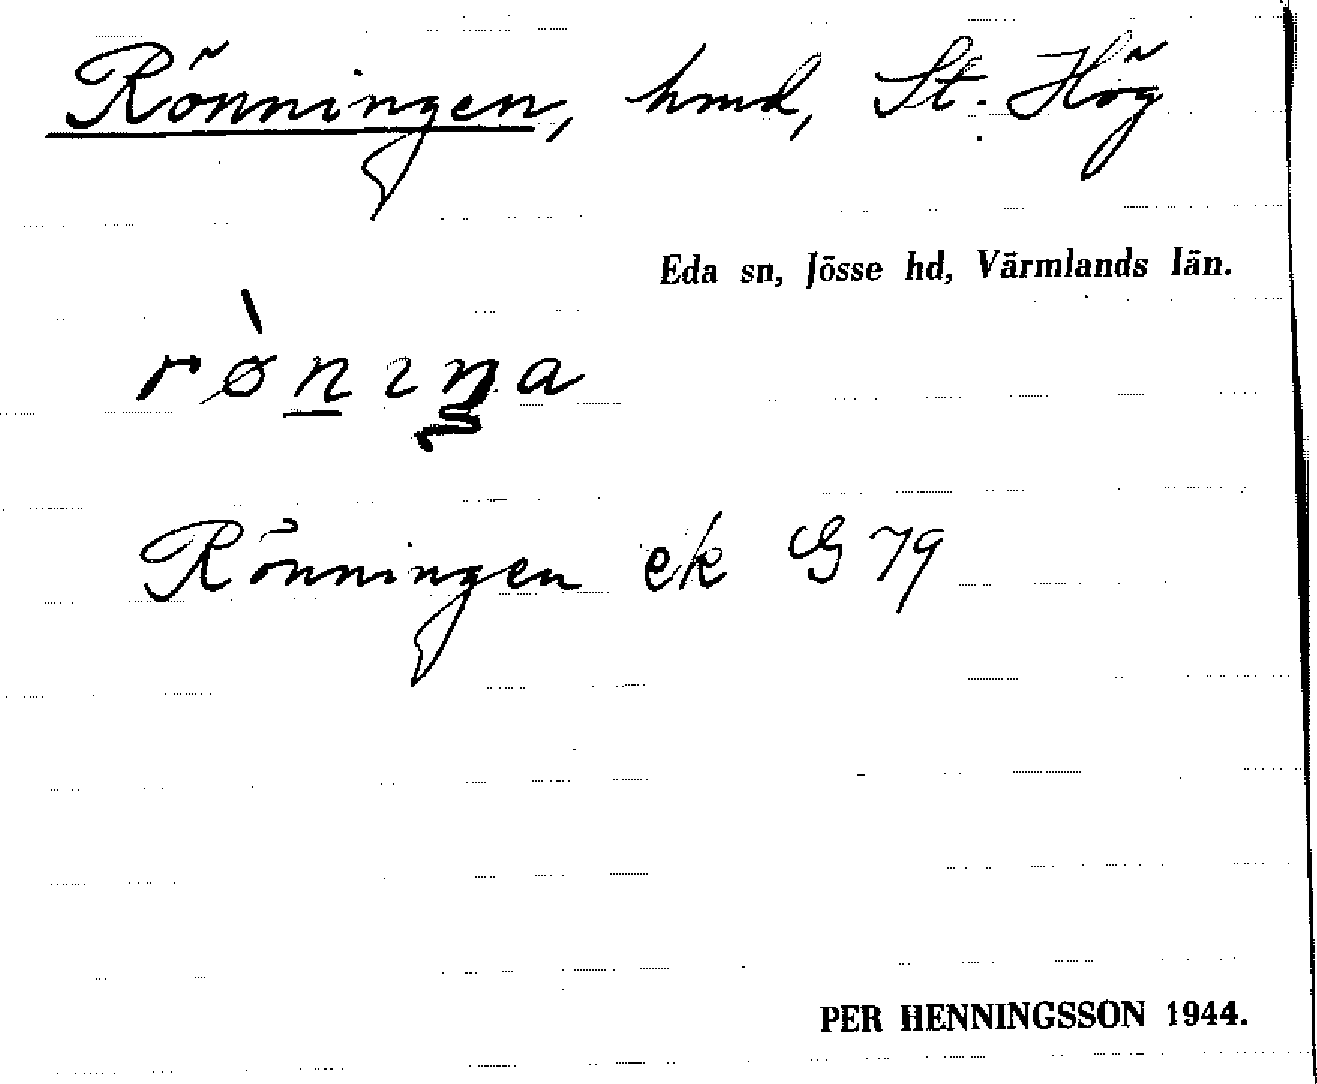 Rönningen, hmd, St. Hög
Eda sn, Jösse hd, Värmlands län.
rø̀nɩŋa
Rönningen ek G 79
PER HENNINGSSON 1944.